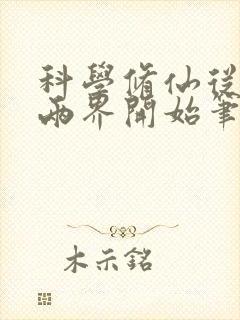 科學脩仙從
兩界開始筆
木示銘